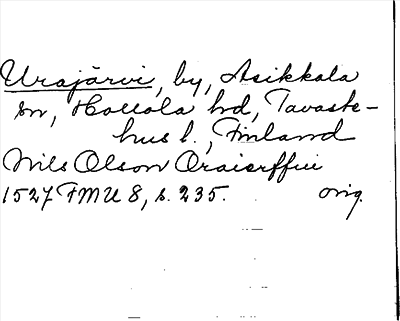 Urajärvi, by, Asikkala
sn, Hollola hd, Tavaste-
hus l., Finland
Nils Olson Oraierffui
1527 FMU 8, s. 235. orig.